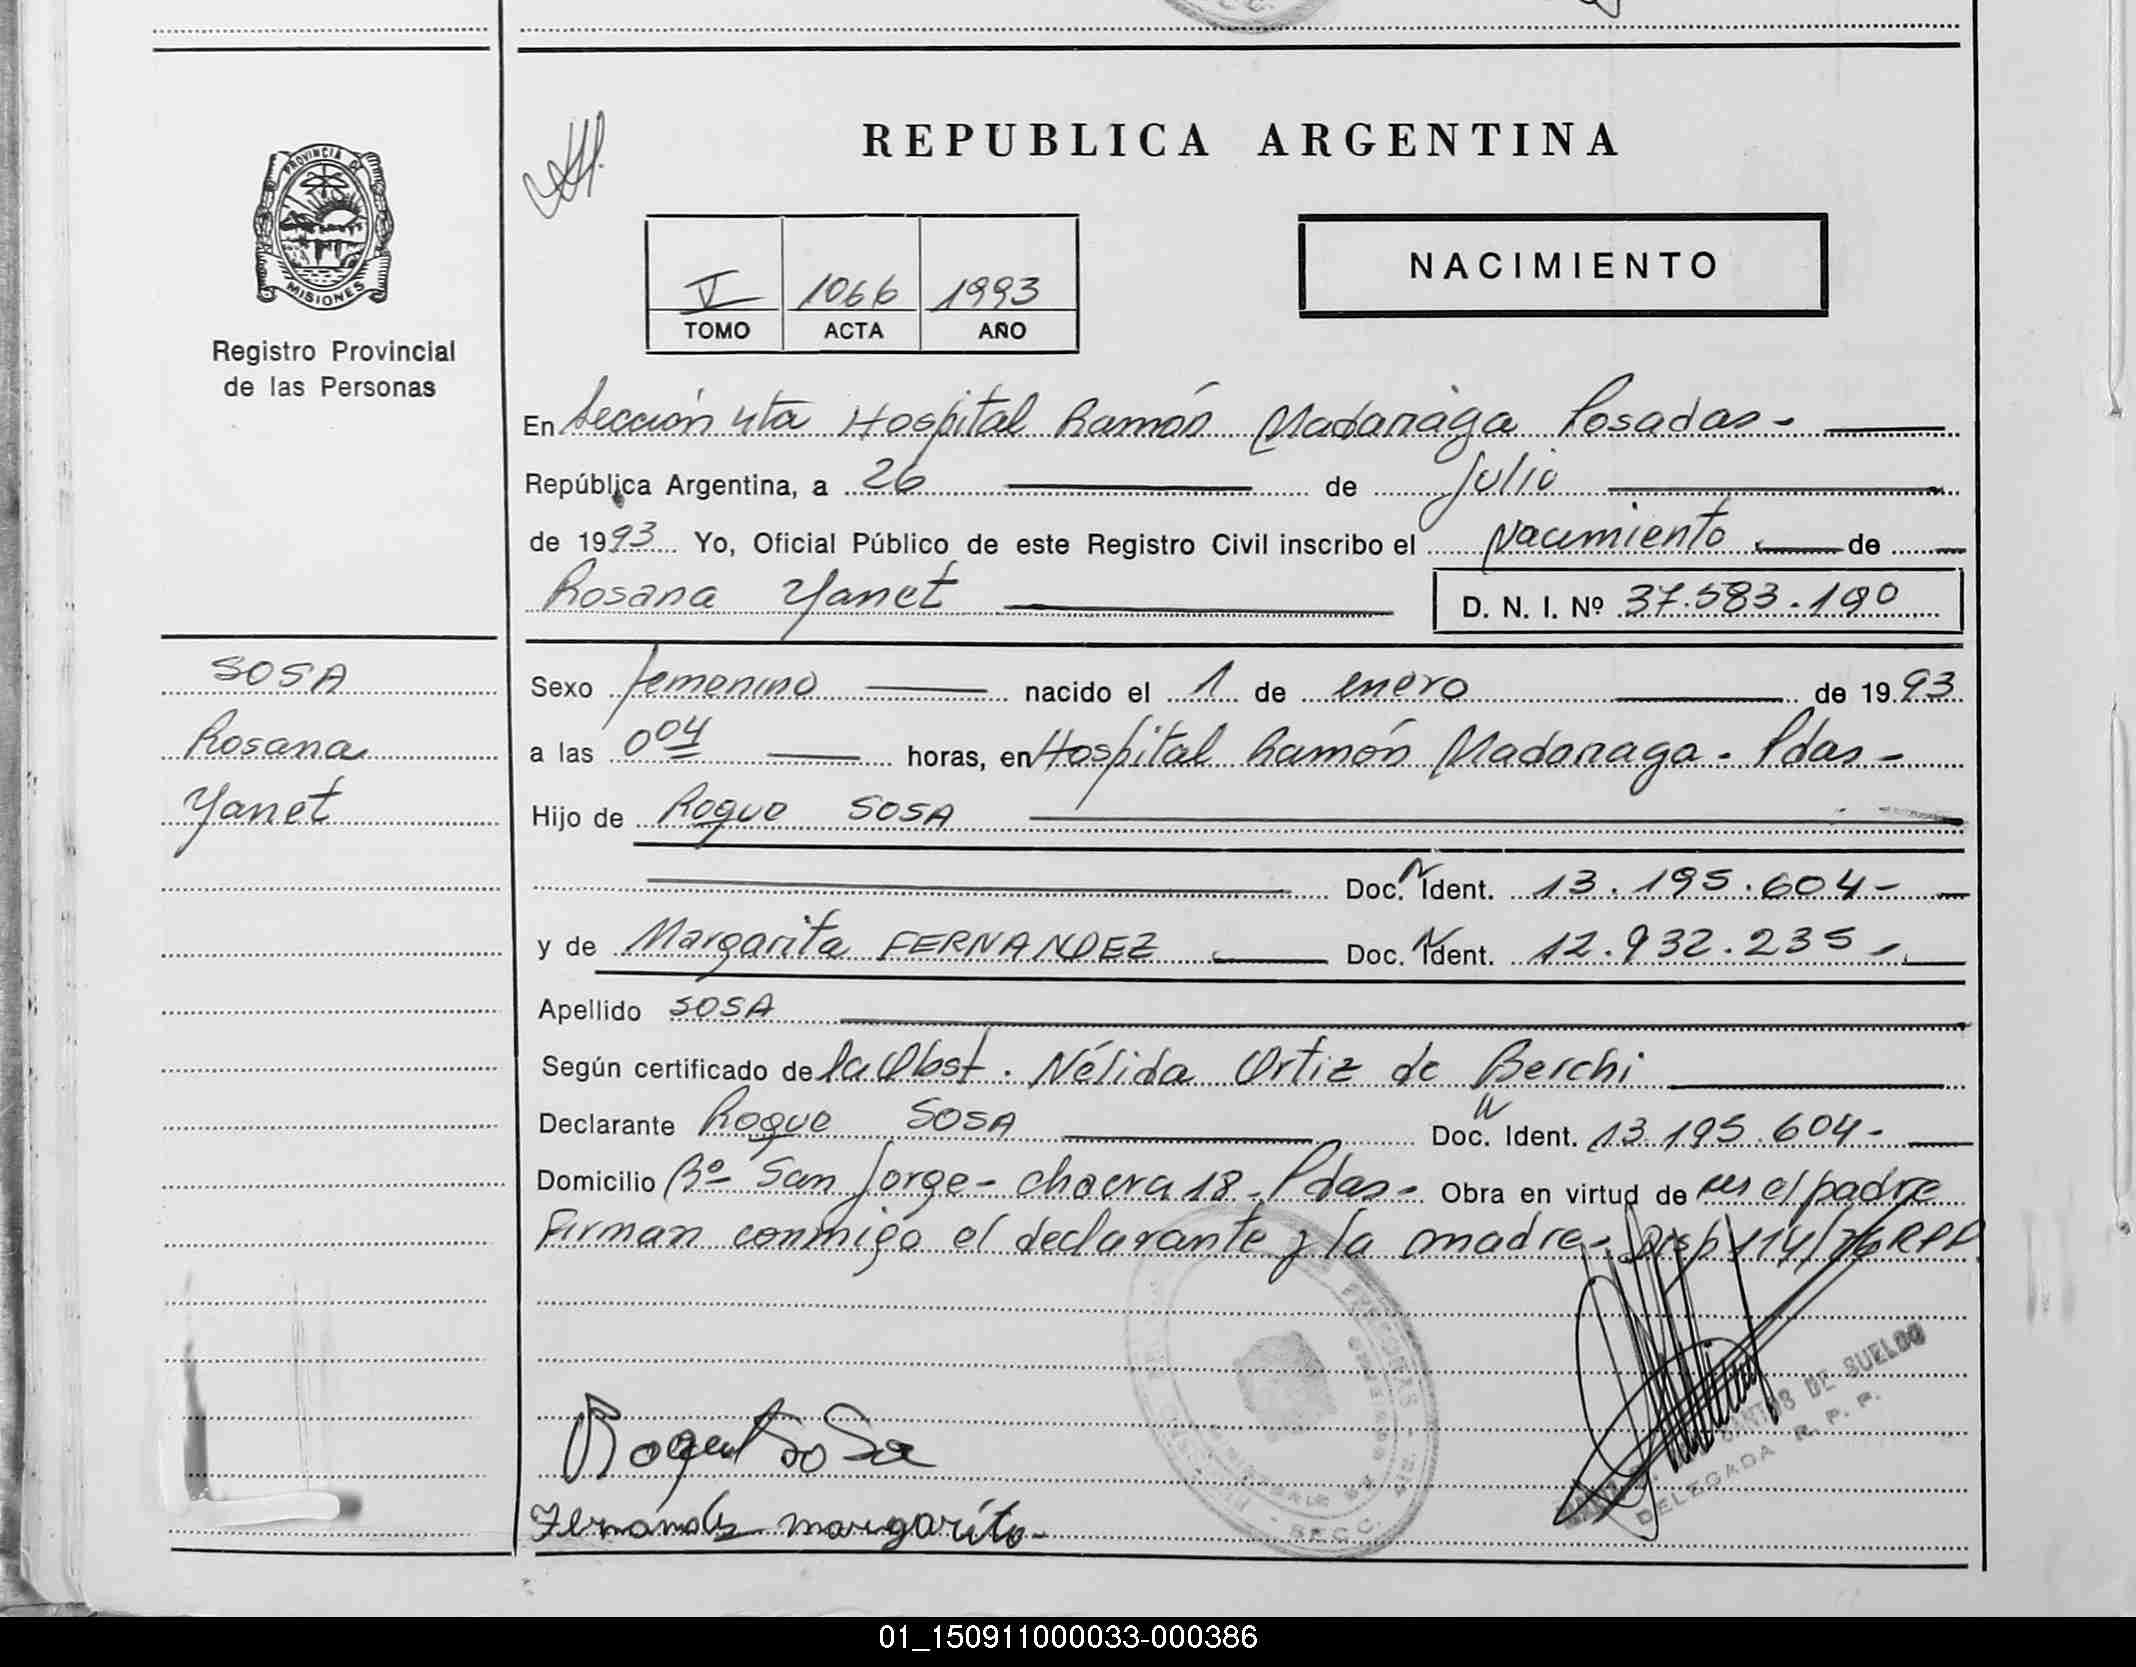 PROVINCIA DE
MISIONES
Registro Provincial
de las Personas
REPUBLICA ARGENTINA
V 1066 1993
TOMO ACTA AÑO
NACIMIENTO
En Sección 4ta Hospital Ramón Madariaga Posadas -
República Argentina, a 26 de Julio
de 1993 Yo, Oficial Público de este Registro Civil inscribo el Nacimiento de
Rosana Yanet D. N. I. Nº 37.583.190
SOSA
Rosana
Yanet
Sexo femenino nacido el 1 de enero de 1993
a las 0 04 horas, en Hospital Ramón Madariaga - Pdas -
Hijo de Roque SOSA
Doc. N Ident. 13.195.604 -
y de Margarita FERNANDEZ Doc. N Ident. 12.932.235 -
Apellido SOSA
Según certificado de la Obst. Nélida Ortiz de Berchi
Declarante Roque SOSA Doc. N Ident. 13.195.604 -
Domicilio Bº San Jorge - chacra 18 - Pdas - Obra en virtud de ser el padre
Firman conmigo el declarante y la madre - Disp 114/76 RPP
Roque Sosa
Fernandez margarita -
SANTOS DE SUELDO
DELEGADA R. P. P.
01_150911000033-000386